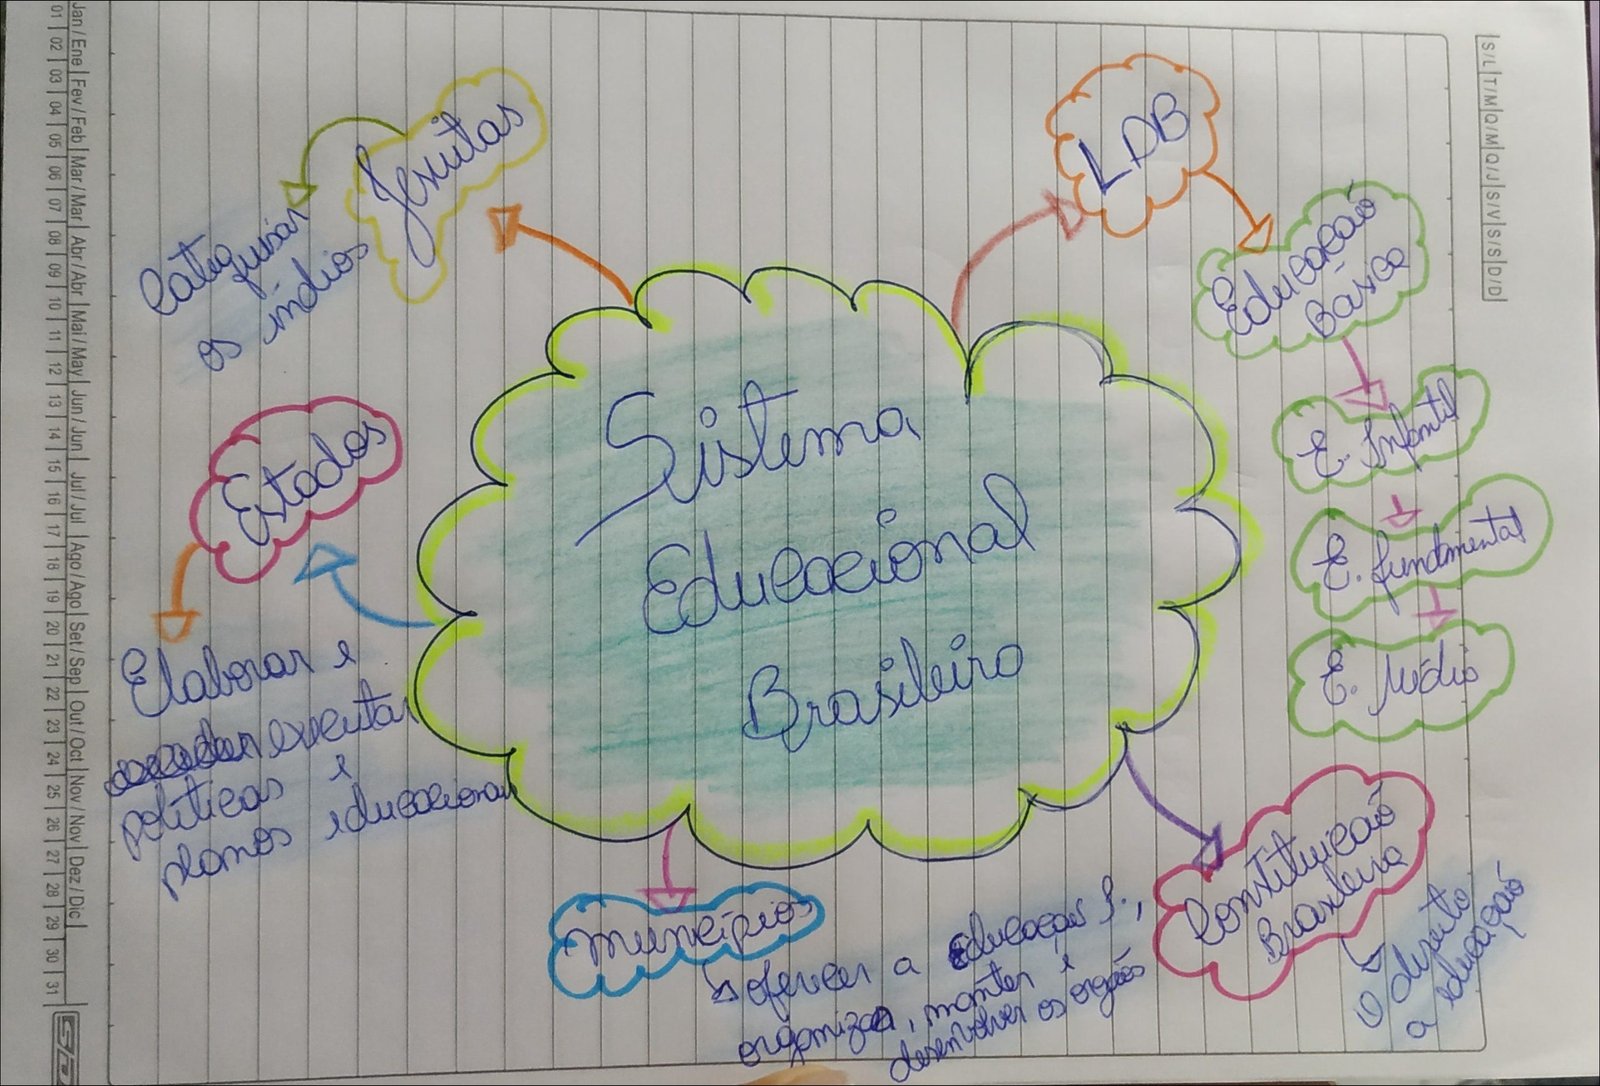 Sistema
Educacional
Brasileiro
Jesuitas
Catequisar
os índios
LDB
Educação
Básica
E. Infantil
E. fundamental
E. Médio
Estados
Elaborar e
executar
políticas e
planos educacionais
municípios
oferecer a educação f.,
organizar, manter e
desenvolver os orgãos
Constituição
Brasileira
O direito
a educação
Jan / Ene | Fev / Feb | Mar / Mar | Abr / Abr | Mai / May | Jun / Jun | Jul / Jul | Ago / Ago | Set / Sep | Out / Oct | Nov / Nov | Dez / Dic
01 | 02 | 03 | 04 | 05 | 06 | 07 | 08 | 09 | 10 | 11 | 12 | 13 | 14 | 15 | 16 | 17 | 18 | 19 | 20 | 21 | 22 | 23 | 24 | 25 | 26 | 27 | 28 | 29 | 30 | 31
S/L|T/M|Q/M|Q/J|S/V|S/S|D/D